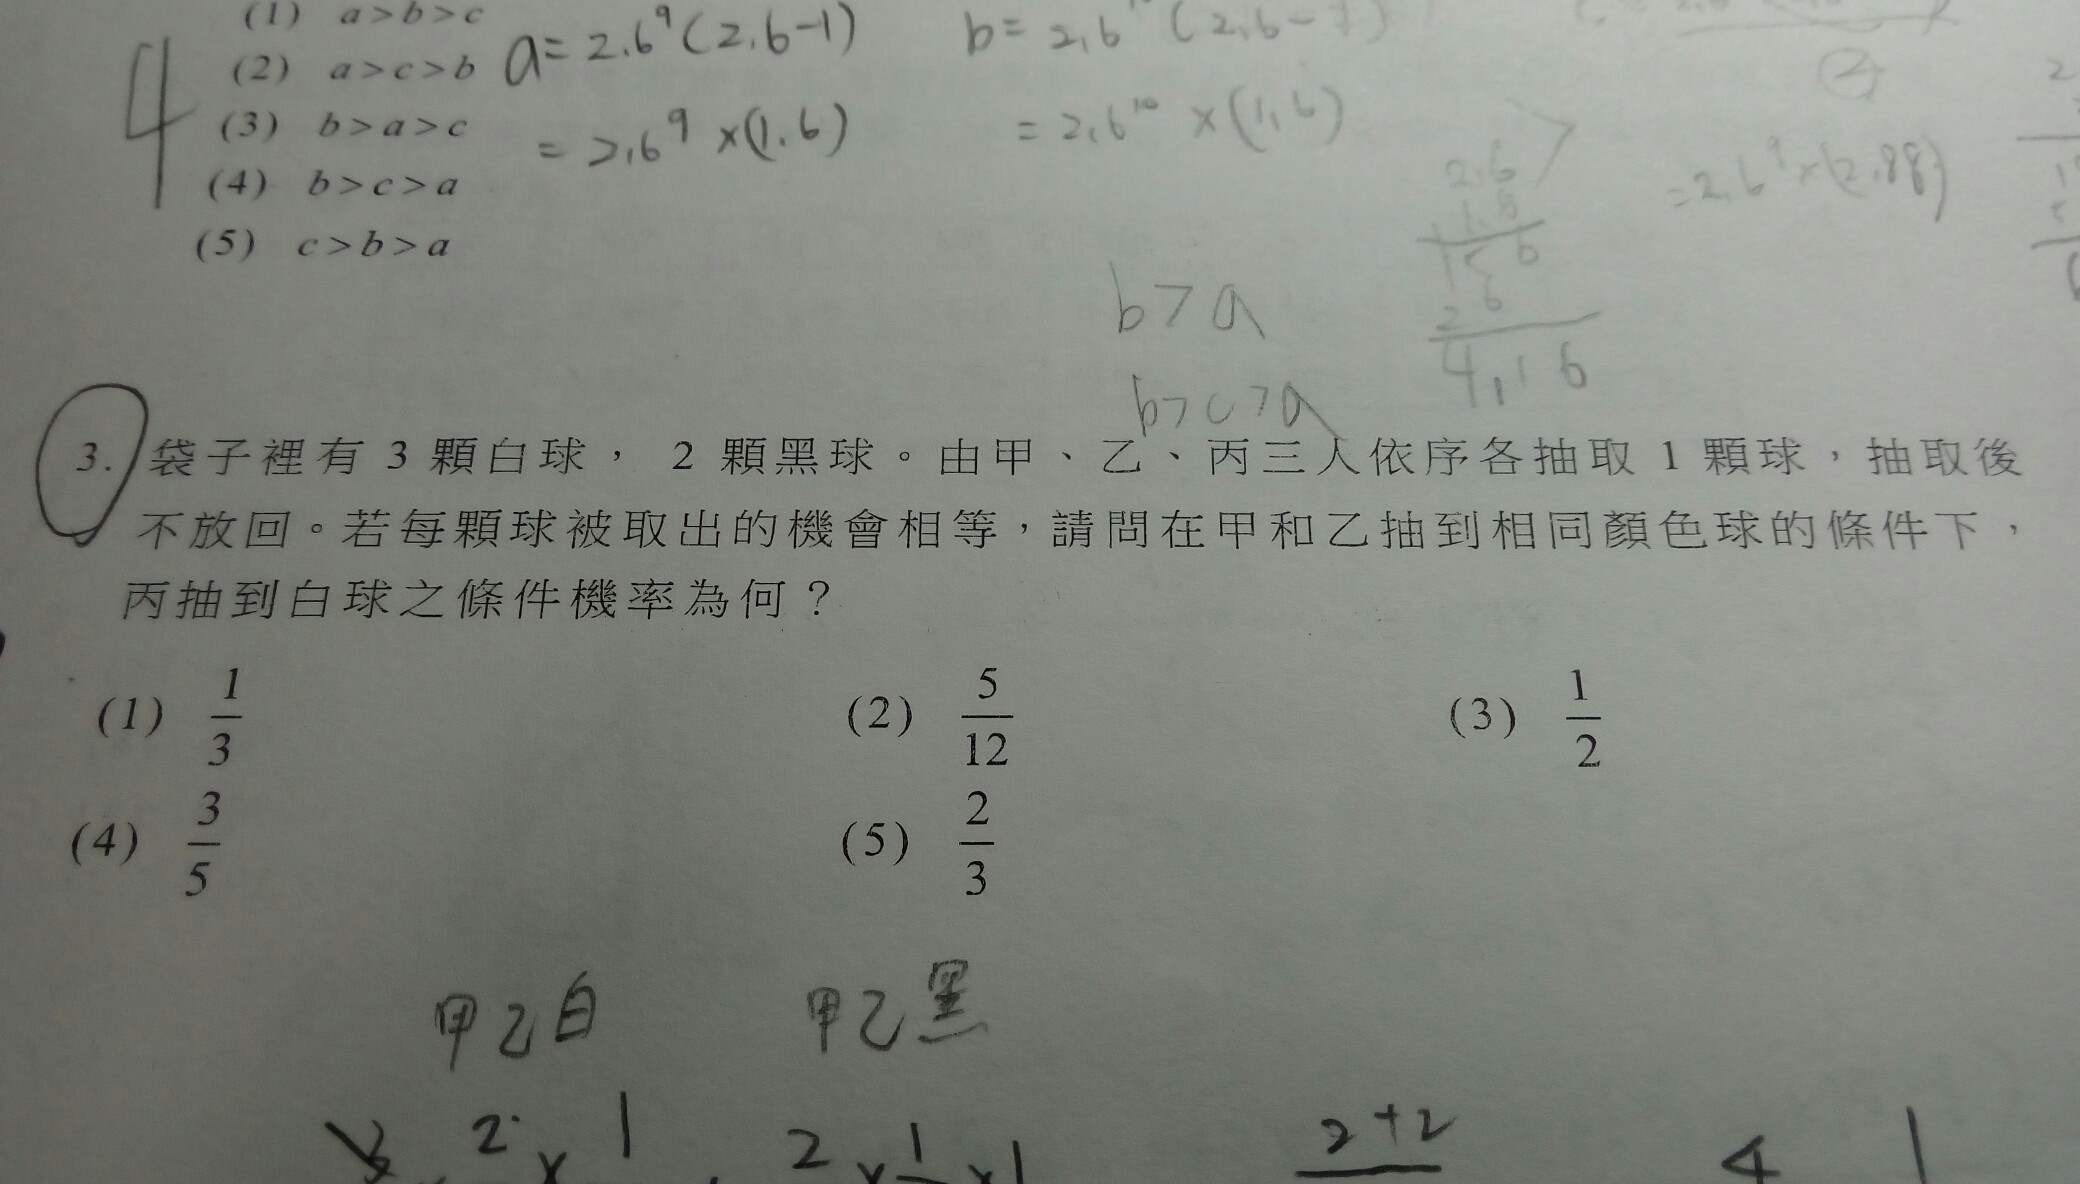 (1) a>b>c
a=2.6⁹(2.6-1)
b=2.6¹⁰(2.6-1)
(2) a>c>b
4
(3) b>a>c
=2.6⁹×(1.6)
=2.6¹⁰×(1.6)
(4) b>c>a
=2.6⁹×(2.88)
2.6
1.8
(5) c>b>a
b>a
4.16
b>c>a
3. 袋子裡有 3 顆白球， 2 顆黑球。由甲、乙、丙三人依序各抽取 1 顆球，抽取後
不放回。若每顆球被取出的機會相等，請問在甲和乙抽到相同顏色球的條件下，
丙抽到白球之條件機率為何？
(1) 1/3 (2) 5/12 (3) 1/2
(4) 3/5 (5) 2/3
甲乙白 甲乙黑
2+2